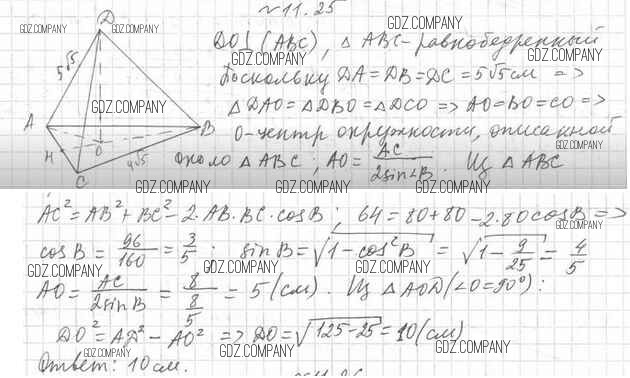 №11.25
GDZ.COMPANY
GDZ.COMPANY GDZ.COMPANY
D
DO⊥(ABC), △ABC-равнобедренный
5√5
GDZ.COMPANY
Поскольку DA=DB=DC=5√5см =>
GDZ.COMPANY
△DAO=△DBO=△DCO => AO=BO=CO =>
A B
O-центр окружности, описанной
H O
C 4√5
GDZ.COMPANY
около △ABC; AO = AC / 2sin∠B. Из △ABC
GDZ.COMPANY GDZ.COMPANY
GDZ.COMPANY GDZ.COMPANY
AC² = AB² + BC² - 2·AB·BC·cosB; 64 = 80+80-2·80cosB =>
GDZ.COMPANY
cosB = 96/160 = 3/5; sinB = √1-cos²B = √1-9/25 = 4/5
GDZ.COMPANY GDZ.COMPANY GDZ.COMPANY
AO = AC / 2sinB = 8 / 8/5 = 5 (см). Из △AOD (∠O=90°):
GDZ.COMPANY
DO² = AD² - AO² => DO = √125-25 = 10 (см)
GDZ.COMPANY GDZ.COMPANY GDZ.COMPANY
Ответ: 10см.